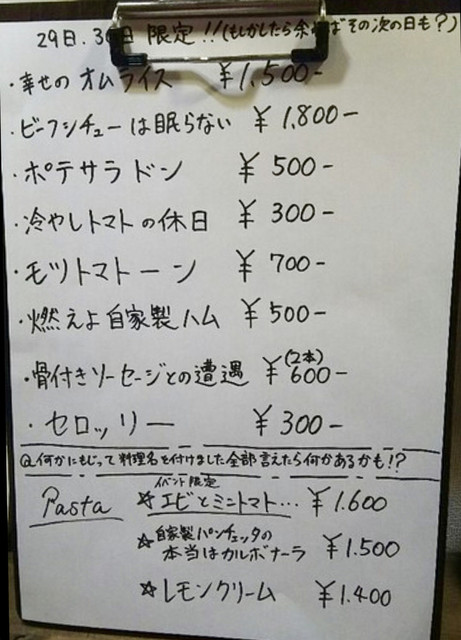 29日.30日 限定!!(もしかしたら余ればその次の日も?)
・幸せの オムライス ¥1,500-
・ビーフシチューは眠らない ¥1,800-
・ポテサラ ドン ¥500-
・冷やしトマトの休日 ¥300-
・モツトマトーン ¥700-
・燃えよ自家製ハム ¥500-
・骨付きソーセージとの遭遇 ¥600- (2本)
・セロッリー ¥300-
Q.何かにもじって料理名を付けました全部言えたら何かあるかも!?
イベント限定
Pasta ☆エビとミニトマト… ¥1.600
☆自家製パンチェッタの
本当はカルボナーラ ¥1.500
☆レモンクリーム ¥1.400